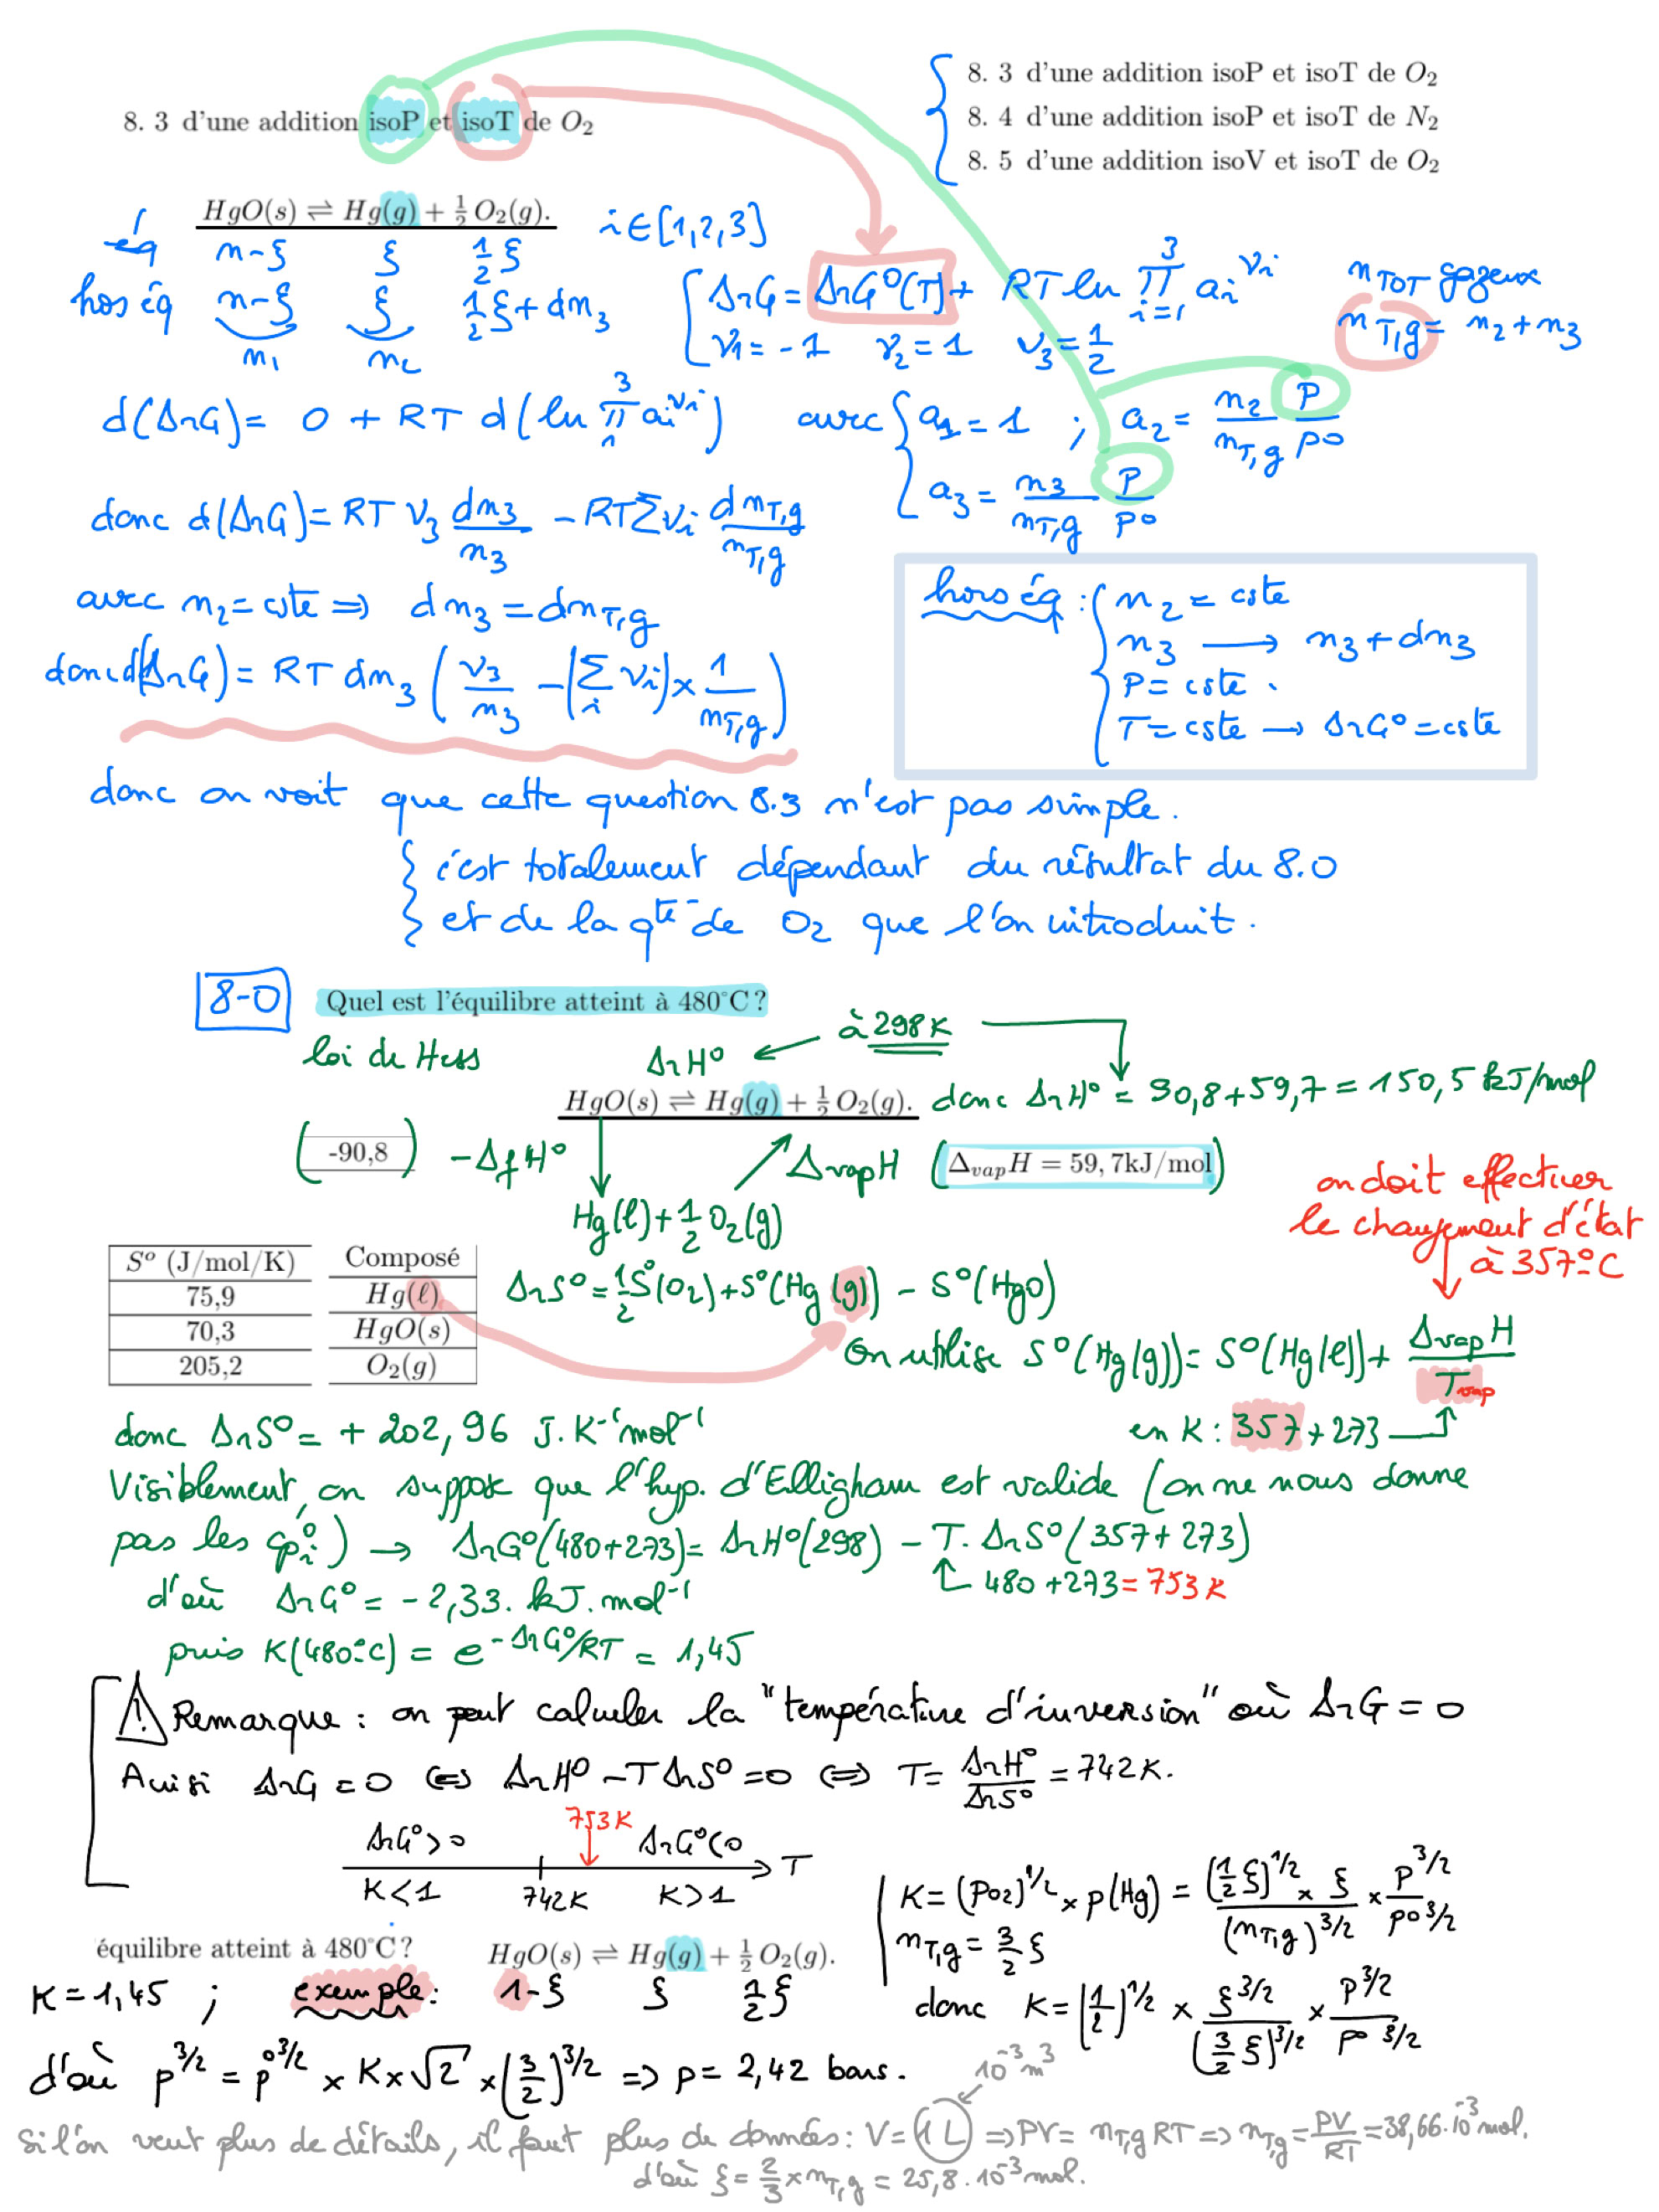 8. 3 d'une addition isoP et isoT de O₂
8. 3 d'une addition isoP et isoT de O₂
8. 4 d'une addition isoP et isoT de N₂
8. 5 d'une addition isoV et isoT de O₂
HgO(s) ⇌ Hg(g) + ½ O₂(g). i∈[1,2,3]
éq n-ξ ξ ½ξ
hors éq n-ξ ξ ½ξ+dn₃
n₁ n₂
ΔrG = ΔrG°(T) + RT ln Π(i=1→3) ai^νi
ν₁ = -1 ν₂ = 1 ν₃ = ½
n TOT gazeux
n T,g = n₂+n₃
d(ΔrG) = 0 + RT d(ln Π(1→3) ai^νi) avec a₁ = 1 ; a₂ = n₂/nT,g P/P°
a₃ = n₃/nT,g P/P°
donc d(ΔrG) = RT ν₃ dn₃/n₃ - RT Σνi dnT,g/nT,g
avec n₂ = cste ⇒ dn₃ = dnT,g
donc d(ΔrG) = RT dn₃ (ν₃/n₃ - (Σi νi) × 1/nT,g)
hors éq : n₂ = cste
n₃ → n₃+dn₃
P = cste.
T = cste → ΔrG° = cste
donc on voit que cette question 8.3 n'est pas simple.
c'est totalement dépendant du résultat du 8.0
et de la qté de O₂ que l'on introduit.
8-0 Quel est l'équilibre atteint à 480°C ?
loi de Hess ΔrH° à 298K
HgO(s) ⇌ Hg(g) + ½ O₂(g). donc ΔrH° = 90,8+59,7 = 150,5 kJ/mol
(-90,8) -ΔfH° ΔvapH (ΔvapH = 59,7kJ/mol)
Hg(l)+½O₂(g)
on doit effectuer
le changement d'état
à 357°C
S° (J/mol/K) Composé
75,9 Hg(ℓ)
70,3 HgO(s)
205,2 O₂(g)
ΔrS° = ½S°(O₂)+S°(Hg(g)) - S°(HgO)
On utilise S°(Hg(g)) = S°(Hg(l)) + ΔvapH/Tvap
en K : 357+273
donc ΔrS° = + 202,96 J.K⁻¹mol⁻¹
Visiblement, on suppose que l'hyp. d'Elligham est valide (on ne nous donne
pas les cp°i) → ΔrG°(480+273) = ΔrH°(298) - T.ΔrS°(357+273)
480+273 = 753 K
d'où ΔrG° = -2,33. kJ.mol⁻¹
puis K(480°C) = e^(-ΔrG°/RT) = 1,45
⚠ Remarque : on peut calculer la "température d'inversion" où ΔrG = 0
Ainsi ΔrG = 0 ⇔ ΔrH° - TΔrS° = 0 ⇔ T = ΔrH°/ΔrS° = 742K.
ΔrG°>0 753K ΔrG°<0
T
K<1 742K K>1
K = (PO₂)^1/2 × p(Hg) = (½ξ)^1/2 × ξ/(nT,g)^3/2 × P^3/2/P°^3/2
nT,g = 3/2 ξ
donc K = (½)^1/2 × ξ^3/2/(3/2 ξ)^3/2 × P^3/2/P°^3/2
équilibre atteint à 480°C ? HgO(s) ⇌ Hg(g) + ½ O₂(g).
K = 1,45 ; exemple : 1-ξ ξ ½ξ
d'où P^3/2 = P°^3/2 × K × √2 × (3/2)^3/2 ⇒ p = 2,42 bars.
10⁻³ m³
si l'on veut plus de détails, il faut plus de données : V = 1L ⇒ PV = nT,g RT ⇒ nT,g = PV/RT = 38,66.10⁻³ mol.
d'où ξ = 2/3 × nT,g = 25,8.10⁻³ mol.